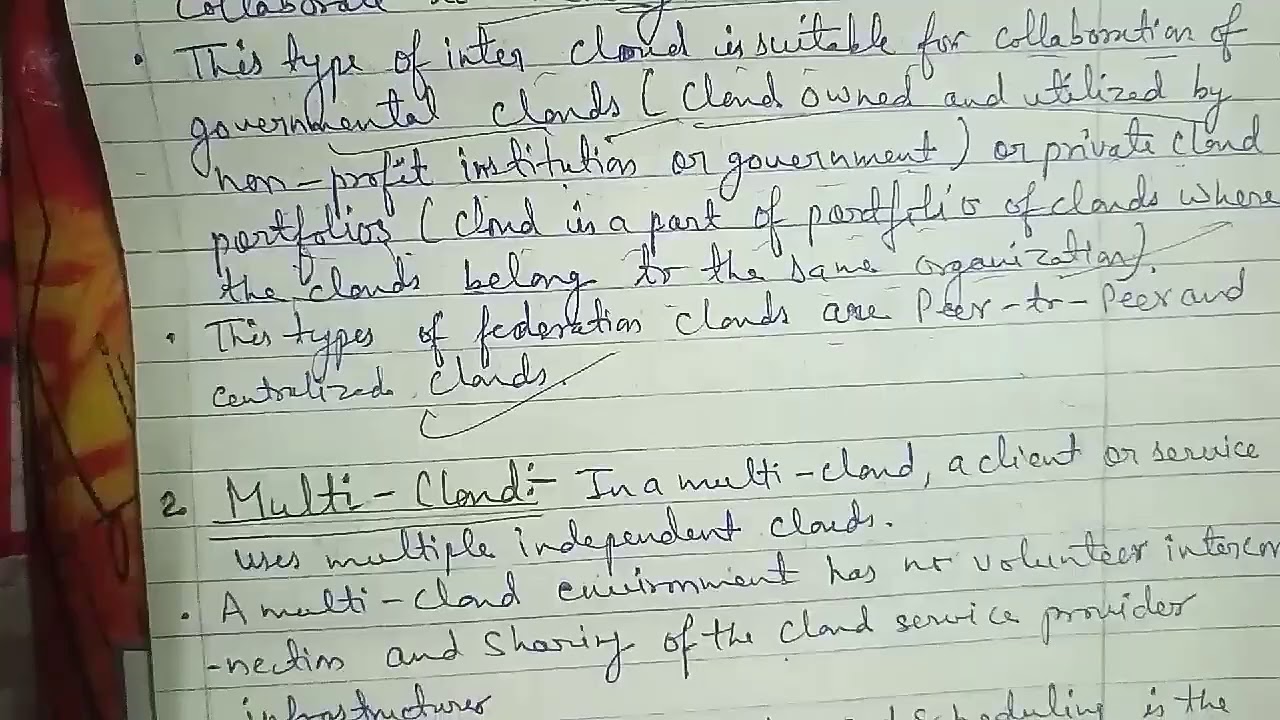 Collaborate
• This type of inter cloud is suitable for collaboration of
governmental clouds (Cloud owned and utilized by
non-profit institution or government) or private cloud
portfolios (Cloud is a part of portfolio of clouds where
the clouds belong to the same organization).
• This types of federation clouds are Peer-to-Peer and
centralized clouds.
2. Multi-Cloud:- In a multi-cloud, a client or service
uses multiple independent clouds.
• A multi-cloud environment has no volunteer intercon
-nection and sharing of the cloud service provider
infrastructures
scheduling is the